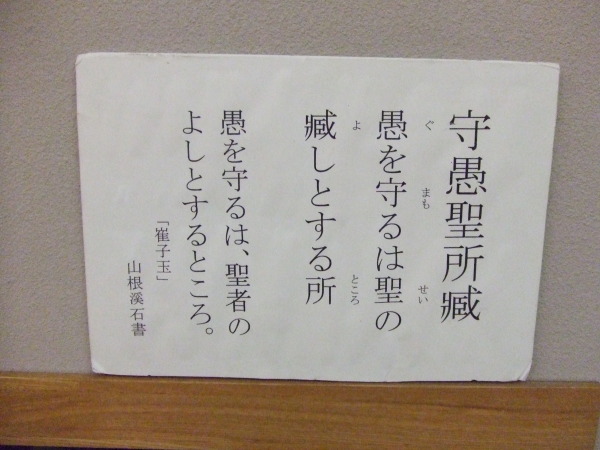 守愚聖所臧
愚を守るは聖の
ぐ まも せい
臧しとする所
よ ところ
愚を守るは、聖者の
よしとするところ。
「崔子玉」
山根溪石書